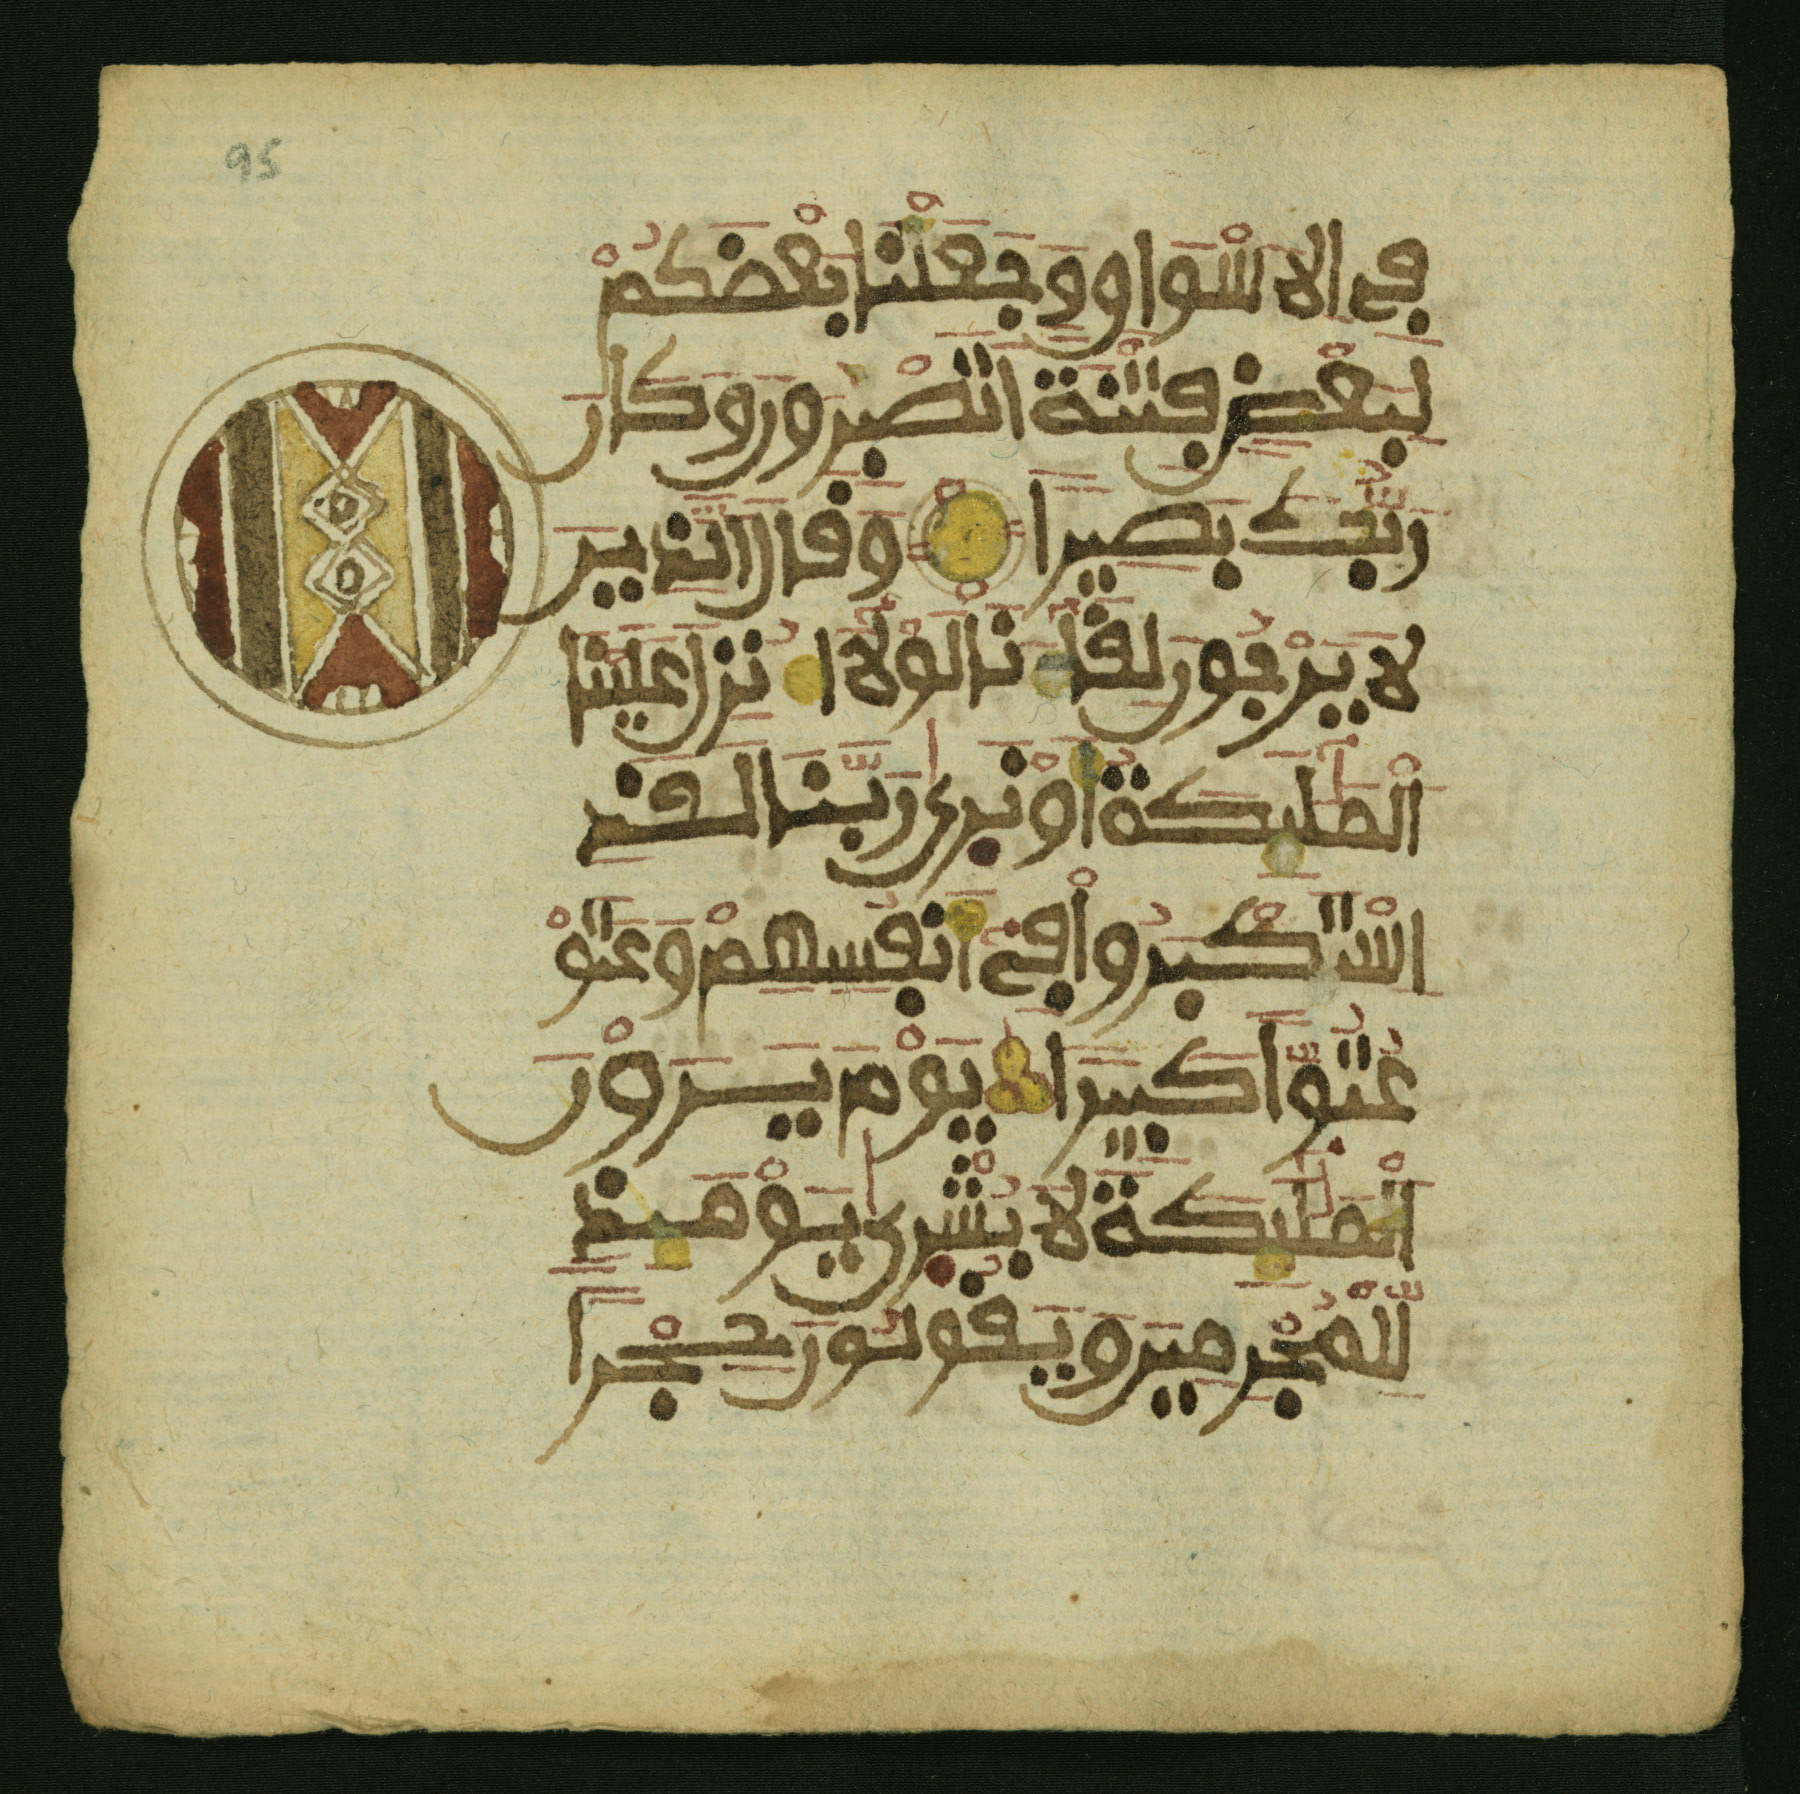 95
فِي الَاسْوَاقِ وَجَعَلْنَا بَعْضَكُمْ
لِبَعْضٍ فِتْنَةً اَتَصْبِرُونَ وَكَانَ
رَبُّكَ بَصِيرًا وَقَالَ الَّذِينَ
لَا يَرْجُونَ لِقَاءَنَا لَوْلَا أُنزِلَ عَلَيْنَا
اَلْمَلَٰئِكَةُ أَوْ نَرَىٰ رَبَّنَا لَقَدِ
اِسْتَكْبَرُوا فِي أَنفُسِهِمْ وَعَتَوْ
عُتُوًّا كَبِيرًا يَوْمَ يَرَوْنَ
اَلْمَلَٰئِكَةَ لَا بُشْرَىٰ يَوْمَئِذٍ
لِّلْمُجْرِمِينَ وَيَقُولُونَ حِجْرًا